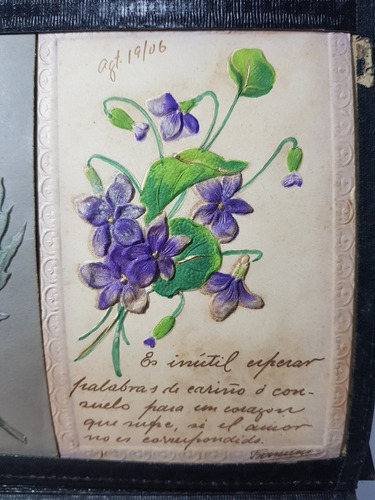 Agt. 19/06
Es inútil esperar
palabras de cariño ó con-
suelo para un corazon
que sufre, si el amor
no es correspondido.